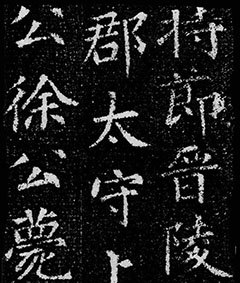 持節晉陵
郡太守上
公徐公薨